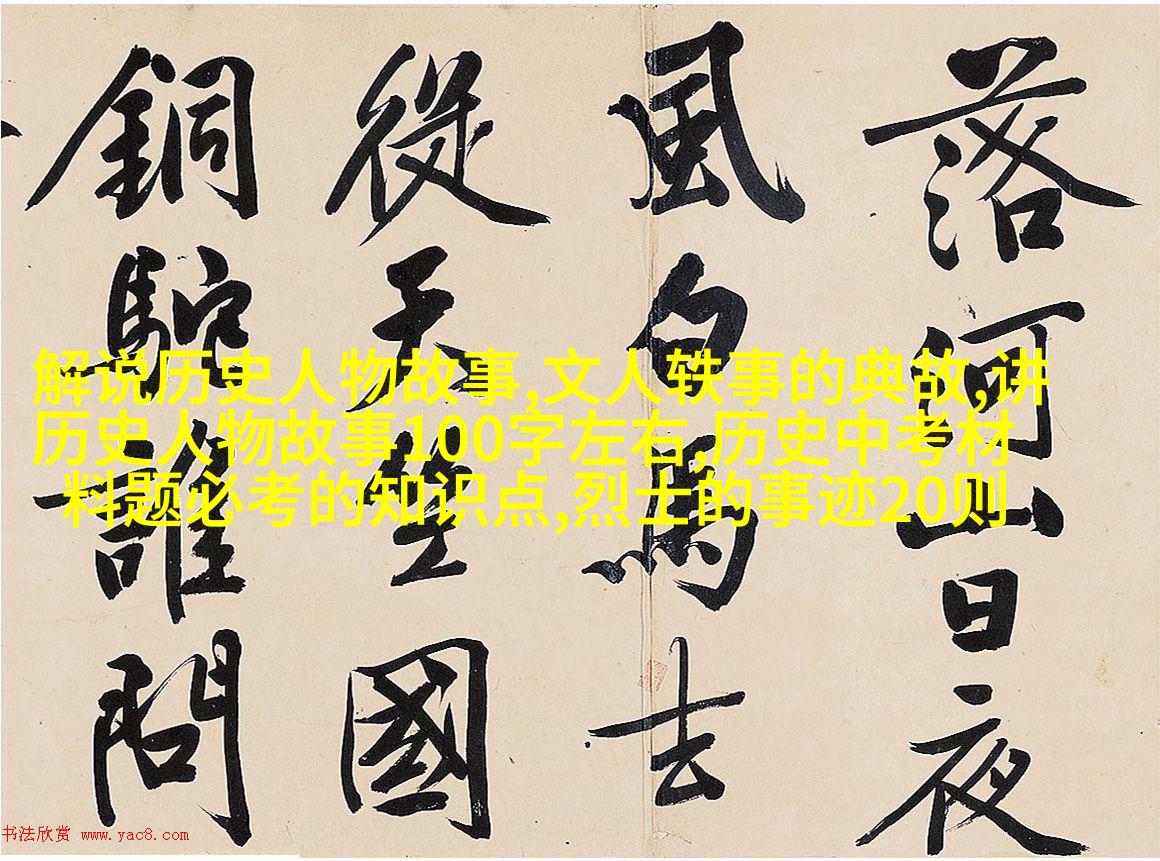 落河山日夜
風白馬去
從天坐國
銅駝誰問
解说历史人物故事,文人轶事的典故,讲
历史人物故事100字左右,历史中考材
料题必考的知识点,烈士的事迹20则
书法欣赏 www.yac8.com